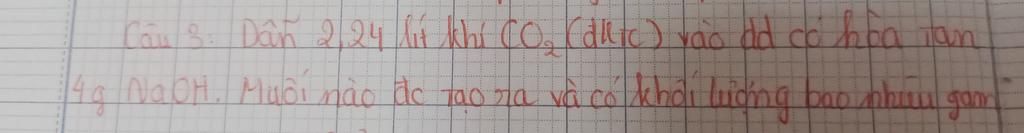 Câu 3: Dẫn 2,24 lít khí CO₂ (đktc) vào dd có hòa tan
4g NaOH. Muối nào đc tạo ra và có khối lượng bao nhiêu gam